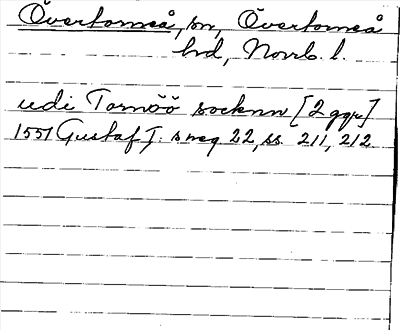 Övertorneå, sn, Övertorneå
hd, Norrb. l.
udi Tornöö socknn [2 ggr]
1551 Gustaf I: s reg 22, ss. 211, 212